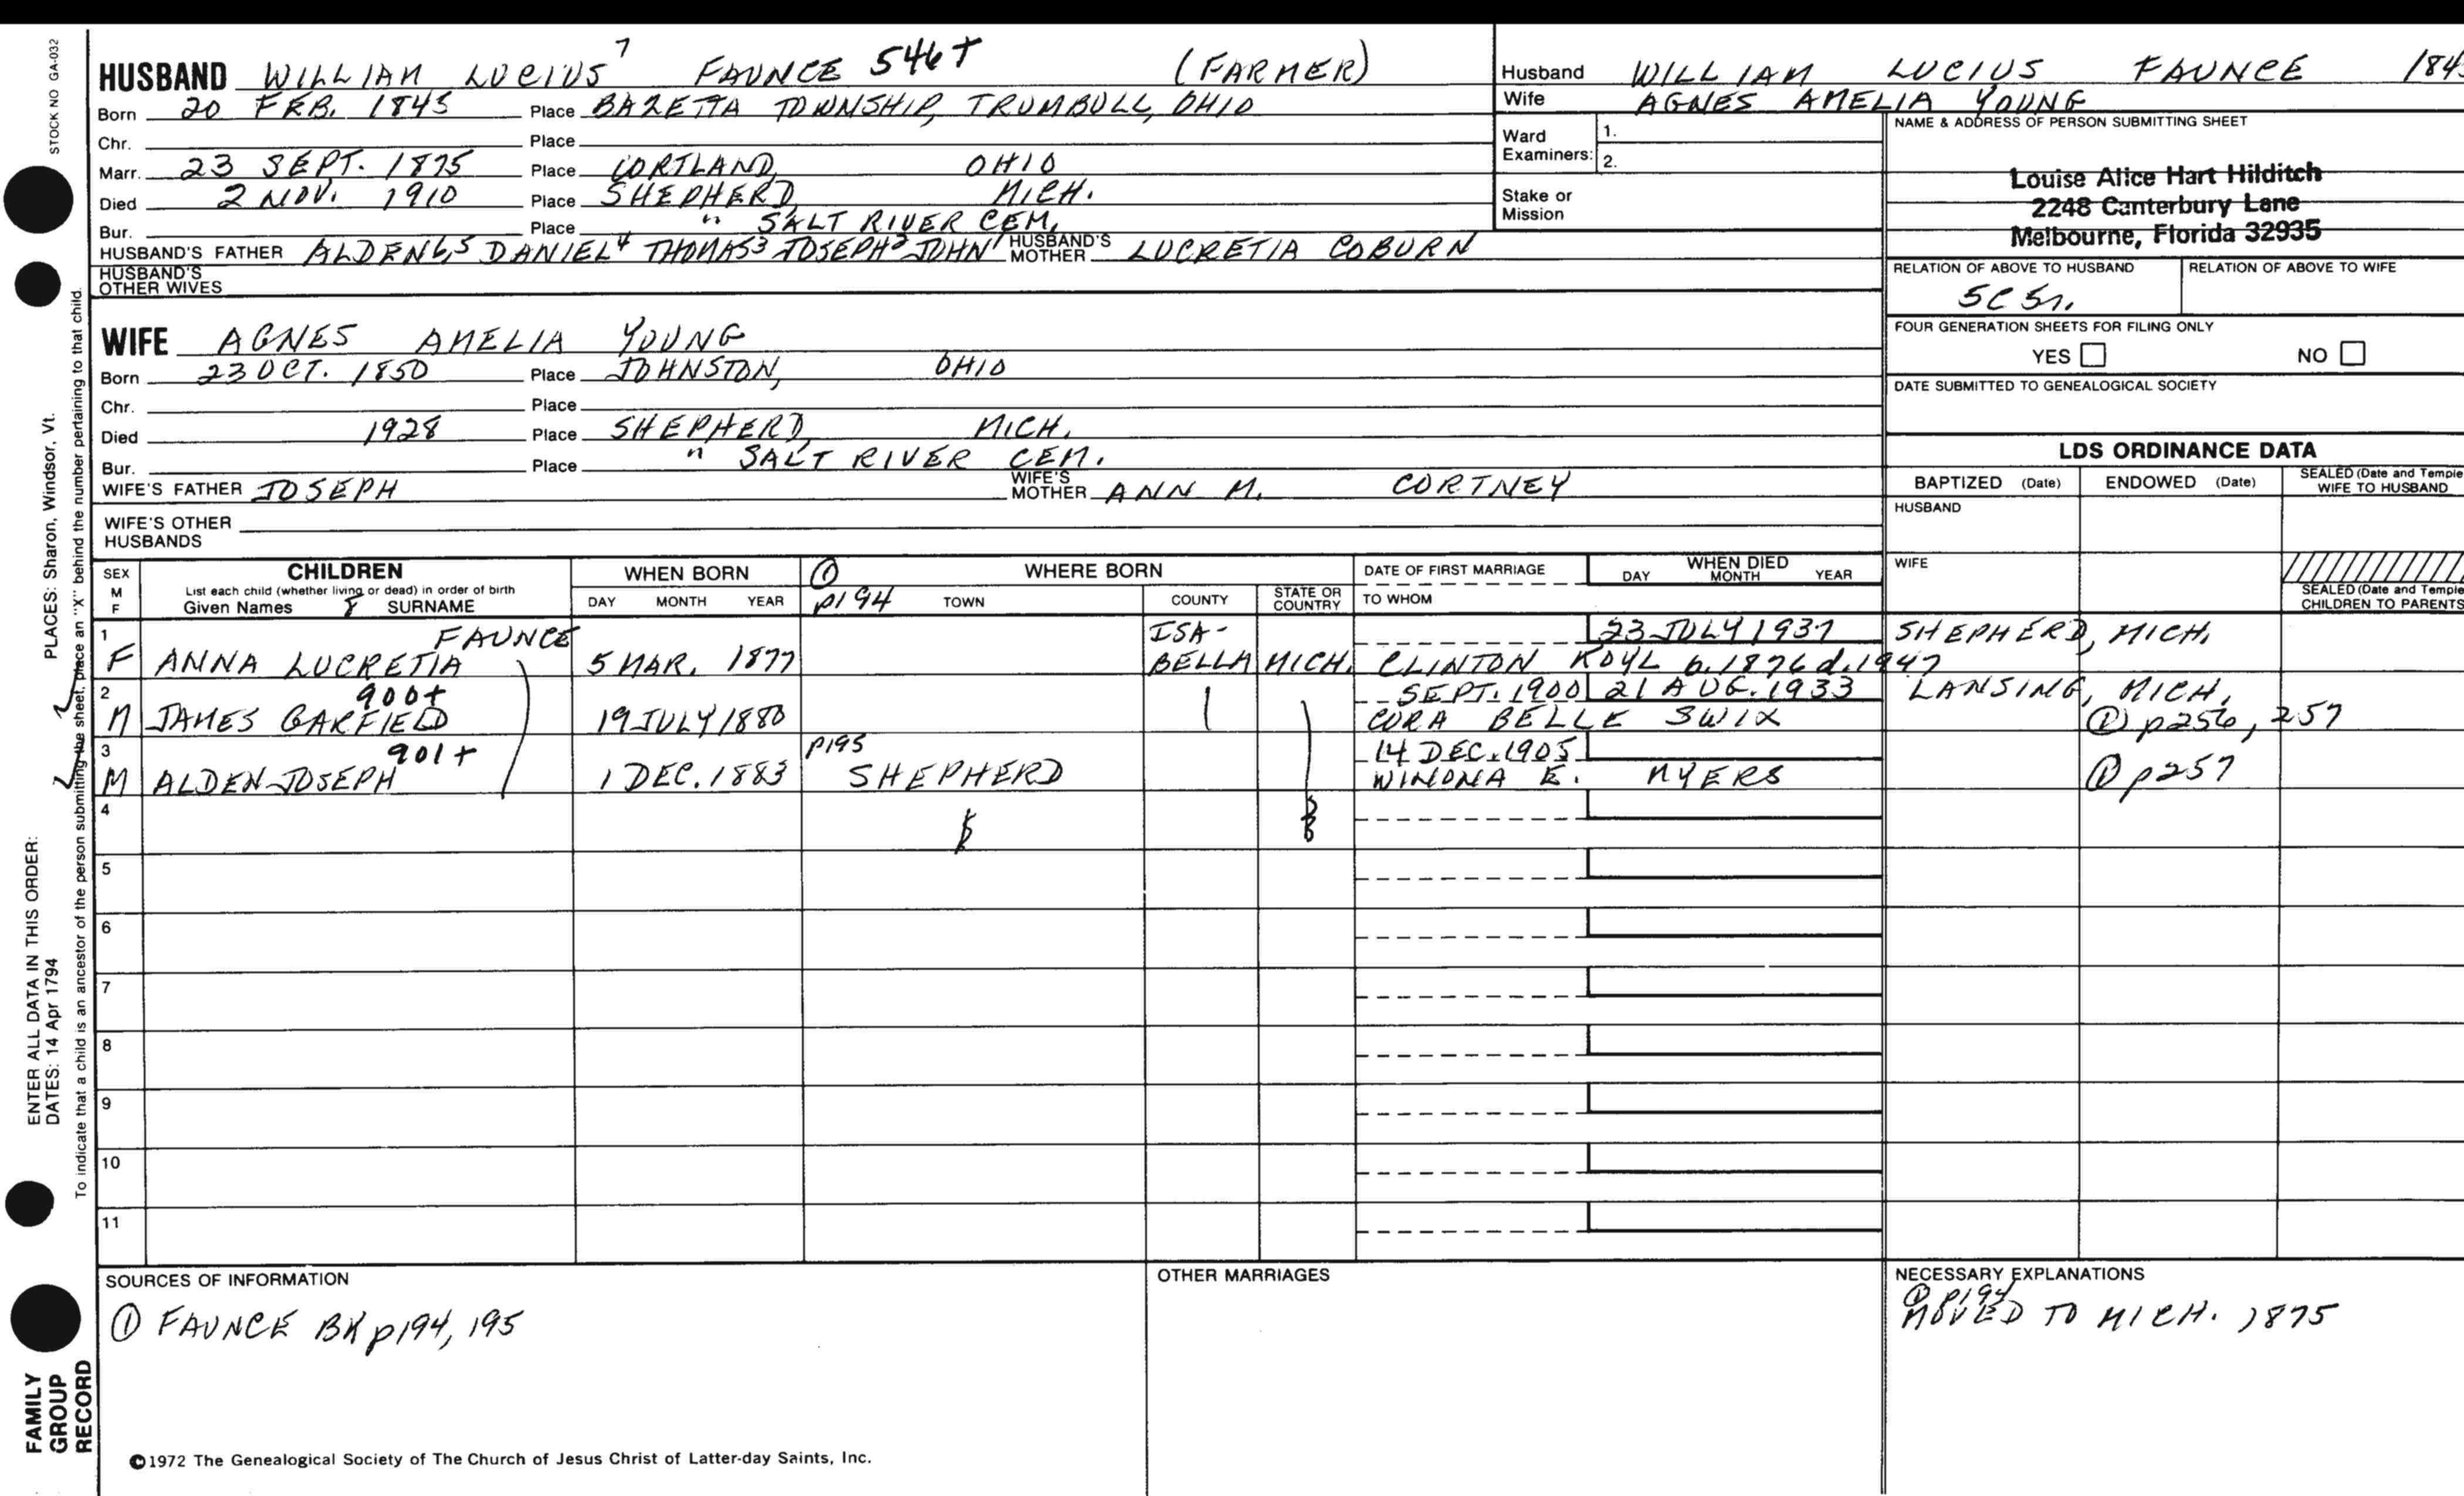 STOCK NO GA-032
HUSBAND WILLIAM LUCIUS 7 FAUNCE 546+ (FARMER)
Born 20 FEB. 1845 Place BAZETTA TOWNSHIP, TRUMBULL, OHIO
Chr. Place
Marr. 23 SEPT. 1875 Place CORTLAND, OHIO
Died 2 NOV. 1910 Place SHEPHERD, MICH.
Bur. Place " SALT RIVER CEM.
HUSBAND'S FATHER ALDEN 6,5 DANIEL 4 THOMAS 3 JOSEPH 2 JOHN 1 HUSBAND'S MOTHER LUCRETIA COBURN
HUSBAND'S OTHER WIVES
WIFE AGNES AMELIA YOUNG
Born 23 OCT. 1850 Place JOHNSTON, OHIO
Chr. Place
Died 1928 Place SHEPHERD, MICH.
Bur. Place " SALT RIVER CEM.
WIFE'S FATHER JOSEPH WIFE'S MOTHER ANN M. CORTNEY
WIFE'S OTHER HUSBANDS
Husband WILLIAM LUCIUS FAUNCE 184
Wife AGNES AMELIA YOUNG
Ward Examiners: 1.
2.
Stake or Mission
NAME & ADDRESS OF PERSON SUBMITTING SHEET
Louise Alice Hart Hilditch
2248 Canterbury Lane
Melbourne, Florida 32935
RELATION OF ABOVE TO HUSBAND RELATION OF ABOVE TO WIFE
FOUR GENERATION SHEETS FOR FILING ONLY
YES NO
DATE SUBMITTED TO GENEALOGICAL SOCIETY
LDS ORDINANCE DATA
BAPTIZED (Date) ENDOWED (Date) SEALED (Date and Temple) WIFE TO HUSBAND
HUSBAND
WIFE
SEALED (Date and Temple) CHILDREN TO PARENTS
SEX M F CHILDREN WHEN BORN ① WHERE BORN DATE OF FIRST MARRIAGE WHEN DIED
List each child (whether living or dead) in order of birth
Given Names 8 SURNAME DAY MONTH YEAR p194 TOWN COUNTY STATE OR COUNTRY TO WHOM DAY MONTH YEAR
1 FAUNCE ISA- 23 JULY 1937 SHEPHERD, MICH.
F ANNA LUCRETIA 5 MAR. 1877 BELLA MICH. CLINTON KOYL b. 1876 d. 1947
2 900+ SEPT. 1900 21 AUG. 1933 LANSING, MICH.
M JAMES GARFIELD 19 JULY 1880 CORA BELLE SWIX ① p256, 257
3 901+ p195 14 DEC. 1905
M ALDEN JOSEPH 1 DEC. 1883 SHEPHERD WINONA E. MYERS ① p257
4
5
6
7
8
9
10
11
SOURCES OF INFORMATION
① FAUNCE BK p194, 195
OTHER MARRIAGES
NECESSARY EXPLANATIONS
① p194
MOVED TO MICH. 1875
©1972 The Genealogical Society of The Church of Jesus Christ of Latter-day Saints, Inc.
FAMILY GROUP RECORD
ENTER ALL DATA IN THIS ORDER:
DATES: 14 Apr 1794 PLACES: Sharon, Windsor, Vt.
To indicate that a child is an ancestor of the person submitting the sheet, place an "X" behind the number pertaining to that child.